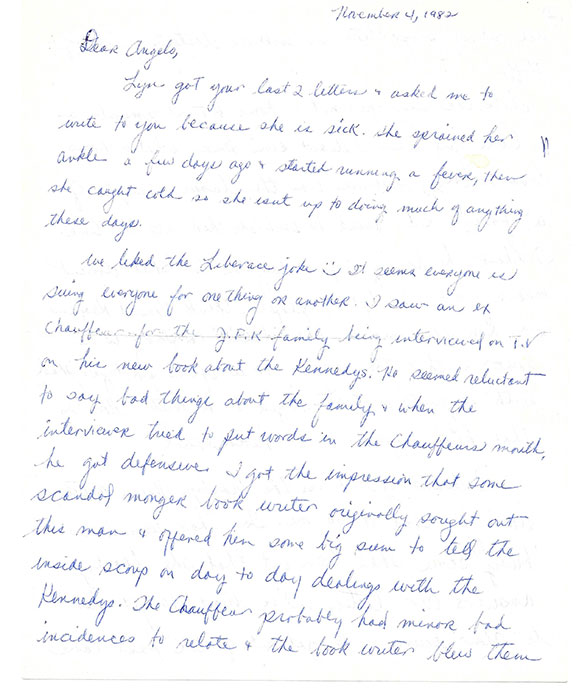 November 4, 1982
Dear Angelo,
Lyn got your last 2 letters & asked me to
write to you because she is sick. She sprained her
ankle a few days ago & started running a fever, then
she caught cold so she isnt up to doing much of anything
these days.
We liked the Liberace joke :) It seems everyone is
suing everyone for one thing or another. I saw an ex
Chauffeur for the J.F.K family being interviewed on T.V
on his new book about the Kennedys. He seemed reluctant
to say bad things about the family & when the
interviewer tried to put words in the Chauffeurs mouth,
he got defensive. I got the impression that some
scandal monger book writer originally sought out
this man & offered him some big sum to tell the
inside scoup on day to day dealings with the
Kennedys. The Chauffeur probably had minor bad
incidences to relate & the book writer blew them